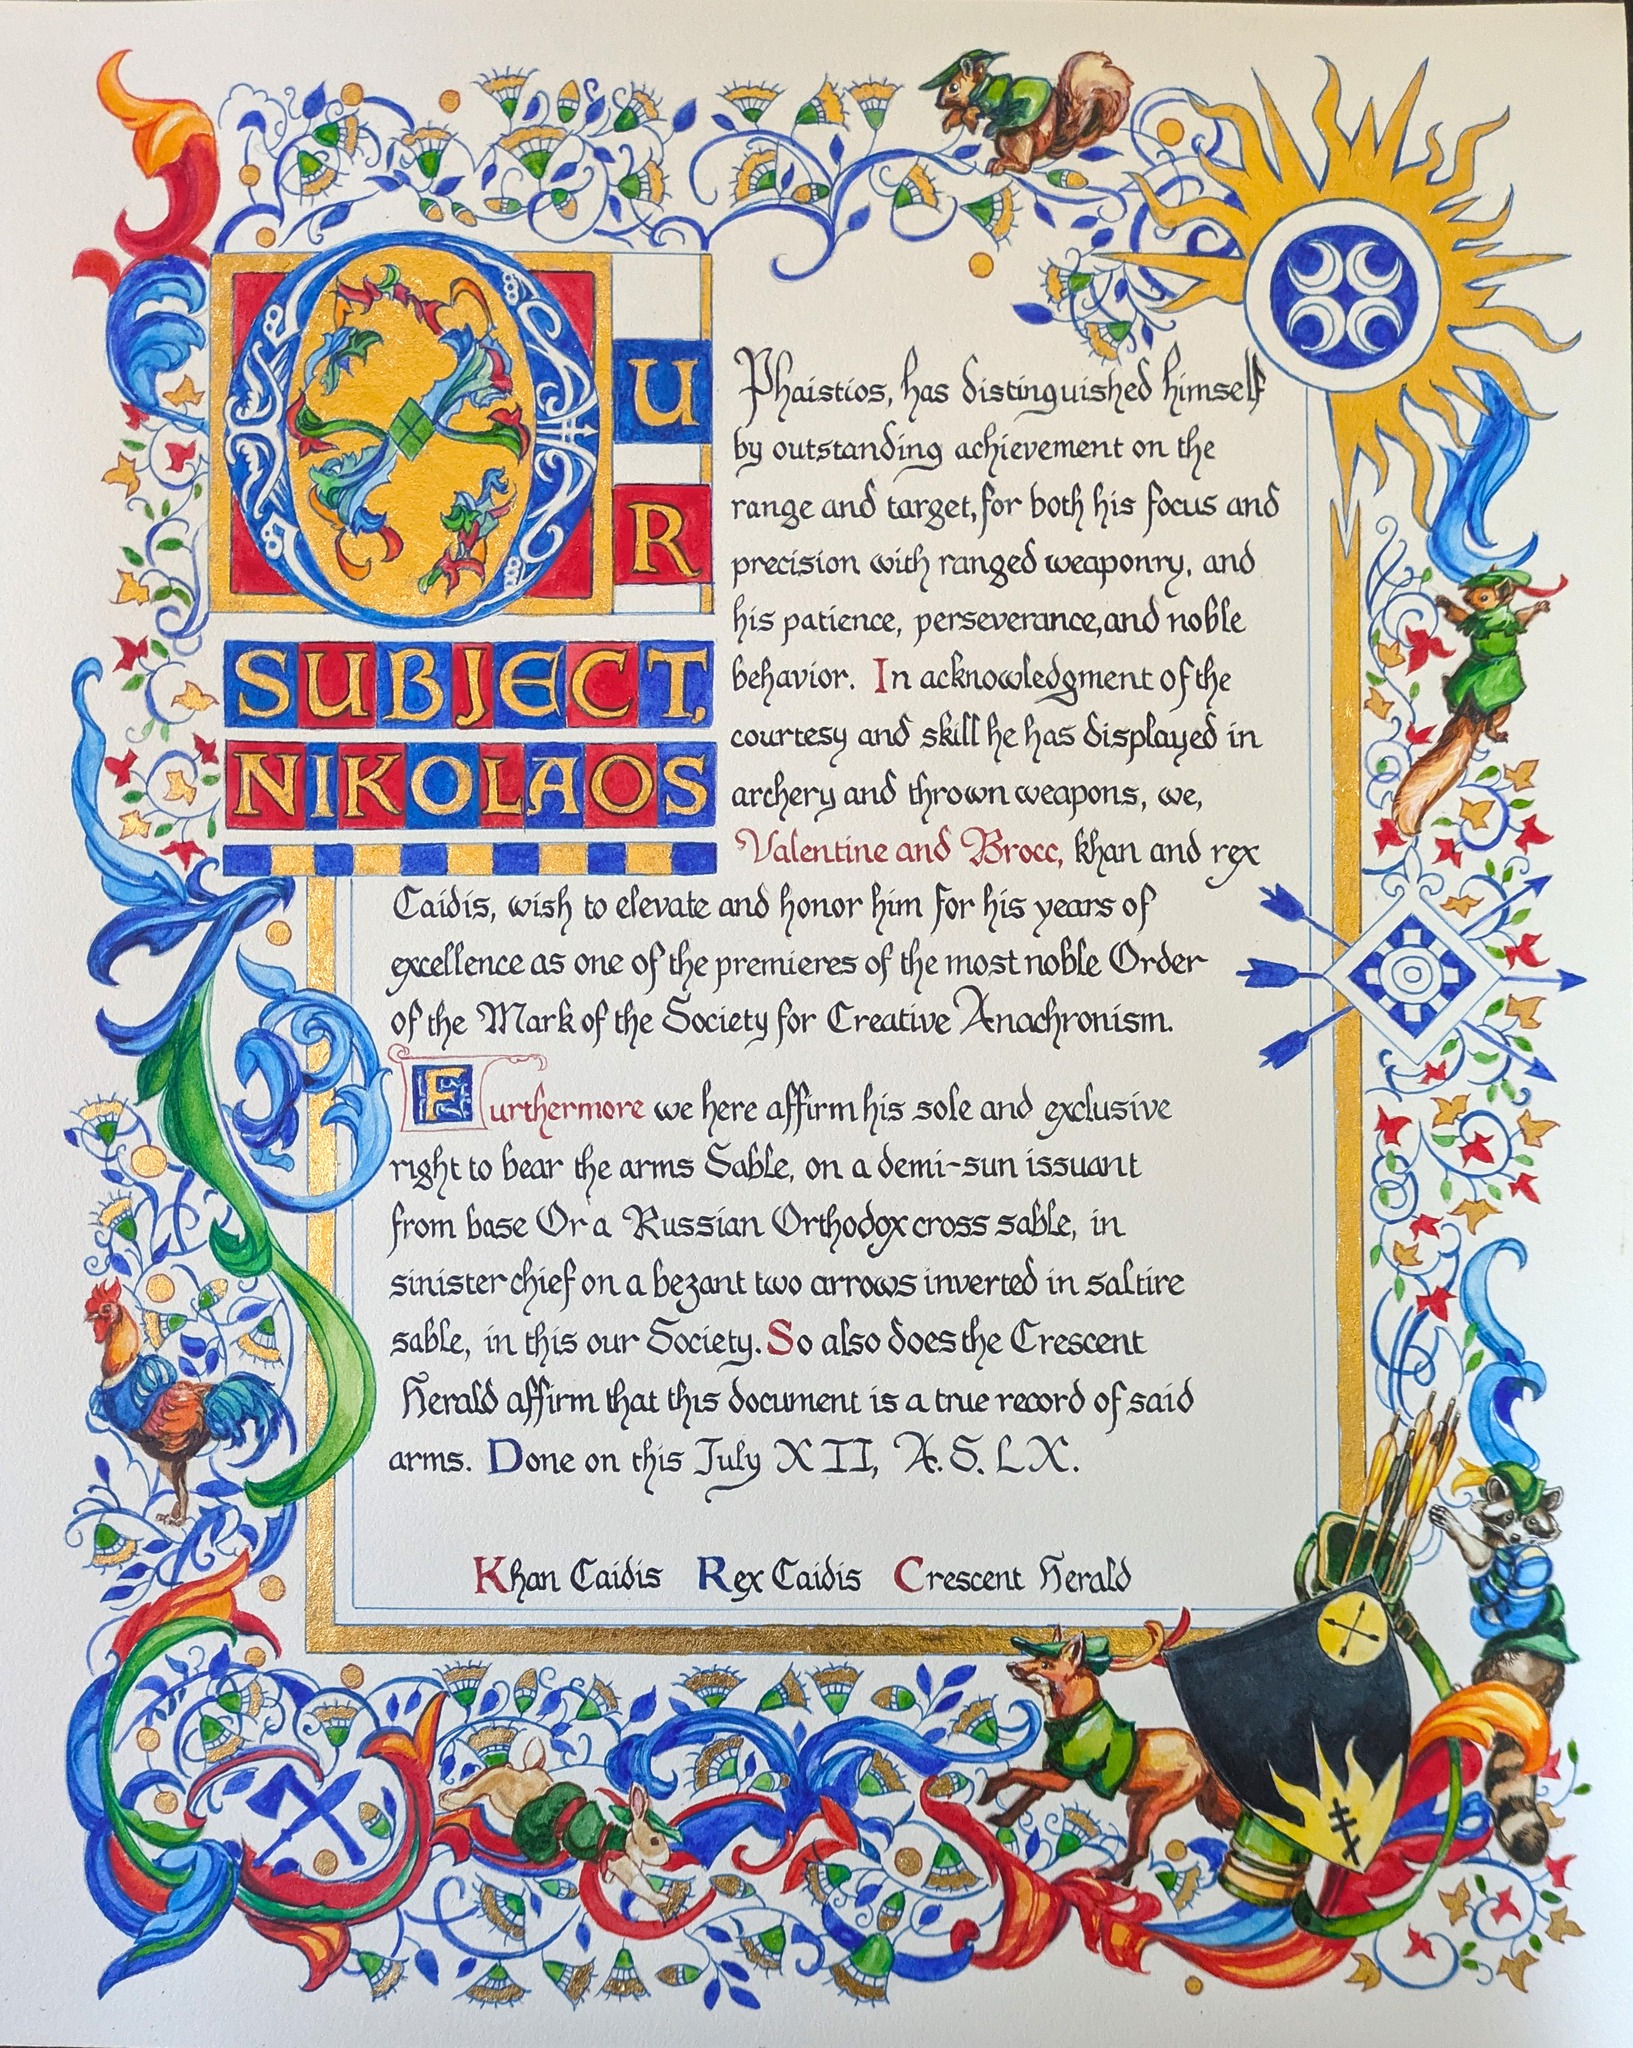 OUR
SUBJECT,
NIKOLAOS
Phaistios, has distinguished himself
by outstanding achievement on the
range and target, for both his focus and
precision with ranged weaponry, and
his patience, perseverance, and noble
behavior. In acknowledgment of the
courtesy and skill he has displayed in
archery and thrown weapons, we,
Valentine and Brocc, khan and rex
Caidis, wish to elevate and honor him for his years of
excellence as one of the premieres of the most noble Order
of the Mark of the Society for Creative Anachronism.
Furthermore we here affirm his sole and exclusive
right to bear the arms Sable, on a demi-sun issuant
from base Or a Russian Orthodox cross sable, in
sinister chief on a bezant two arrows inverted in saltire
sable, in this our Society. So also does the Crescent
Herald affirm that this document is a true record of said
arms. Done on this July XII, A. S. LX.
Khan Caidis Rex Caidis Crescent Herald